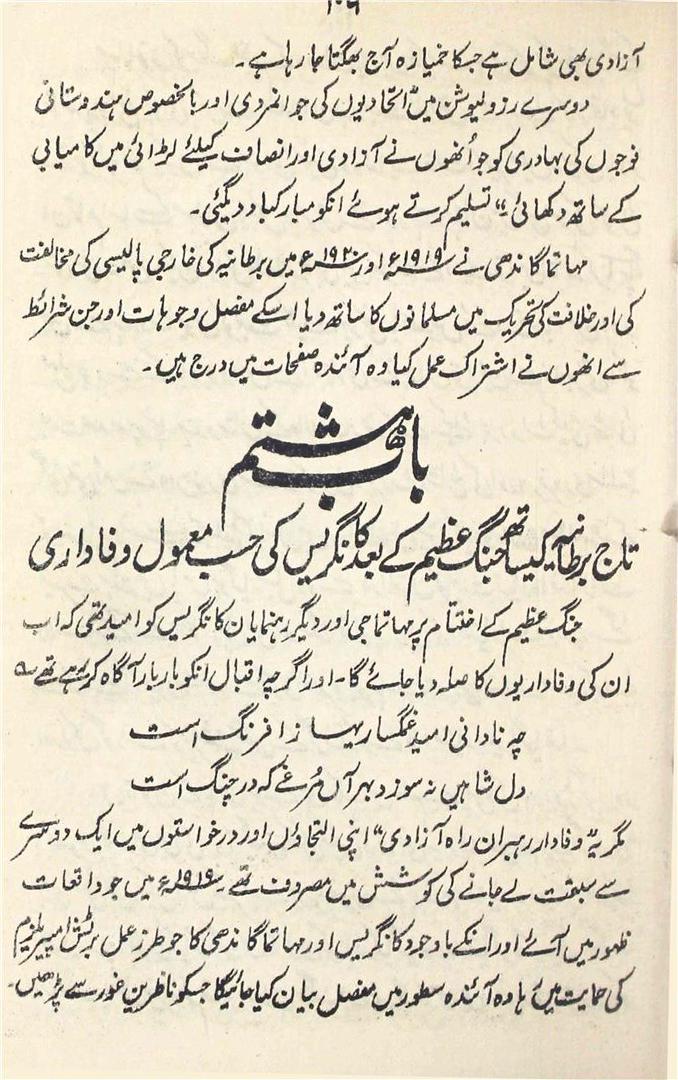 ۱۰۶
آزادی بھی شامل ہے جسکا خمیازہ آج بھگتا جا رہا ہے۔
دوسرے رزولیوشن میں "اتحادیوں کی جوانمردی اور بالخصوص ہندوستانی
فوجوں کی بہادری کو جو اُنھوں نے آزادی اور انصاف کیلئے لڑائی میں کامیابی
کے ساتھ دکھائی" تسلیم کرتے ہوئے انکو مبارکباد دیگئی۔
مہاتما گاندھی نے ۱۹۱۹ء اور ۱۹۲۰ء میں برطانیہ کی خارجی پالیسی کی مخالفت
کی اور خلافت کی تحریک میں مسلمانوں کا ساتھ دیا اسکے مفصل وجوہات اور جن شرائط
سے انھوں نے اشتراک عمل کیا وہ آئندہ صفحات میں درج ہیں۔
باب ہشتم
تاج برطانیہ کیساتھ جنگ عظیم کے بعد کانگریس کی حسب معمول وفاداری
جنگ عظیم کے اختتام پر مہاتما جی اور دیگر رہنمایان کانگریس کو امید تھی کہ اب
ان کی وفاداریوں کا صلہ دیا جائے گا۔ اور اگرچہ اقبال انکو بار بار آگاہ کر رہے تھے ؎
چہ نادانی امید غمگساریہا ز افرنگ است
دل شاہیں نہ سوزد بہر آں مُرغے کہ در چنگ است
مگر یہ "وفادار رہبران راہ آزادی" اپنی التجاؤں اور درخواستوں میں ایک دوسرے
سے سبقت لے جانے کی کوشش میں مصروف تھے۔ ۱۹۱۹ء میں جو واقعات
ظہور میں آئے اور انکے باوجود کانگریس اور مہاتما گاندھی کا جو طرز عمل برٹش امپیریلزم
کی حمایت میں رہا وہ آئندہ سطور میں مفصل بیان کیا جائیگا جسکو ناظرین غور سے پڑھیں۔